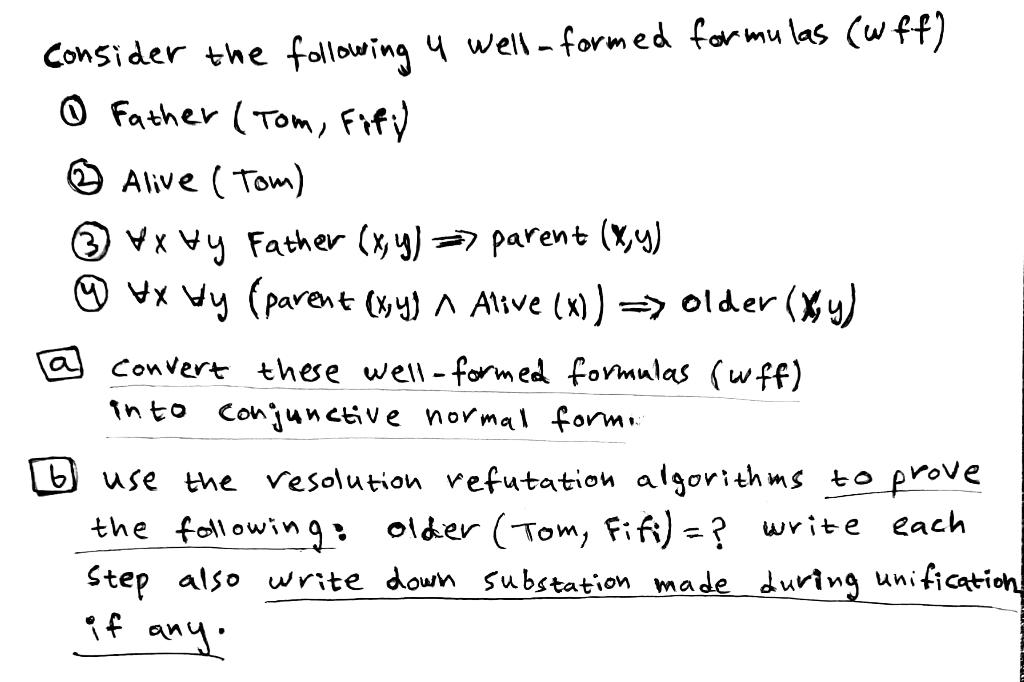 Consider the following 4 well-formed formulas (wff)
① Father (Tom, Fifi)
② Alive (Tom)
③ ∀x ∀y Father (x,y) => parent (x,y)
④ ∀x ∀y (parent (x,y) ∧ Alive (x)) => older (x,y)
a convert these well-formed formulas (wff)
into conjunctive normal form.
b use the resolution refutation algorithms to prove
the following: older (Tom, Fifi) = ? write each
step also write down substation made during unification
if any.